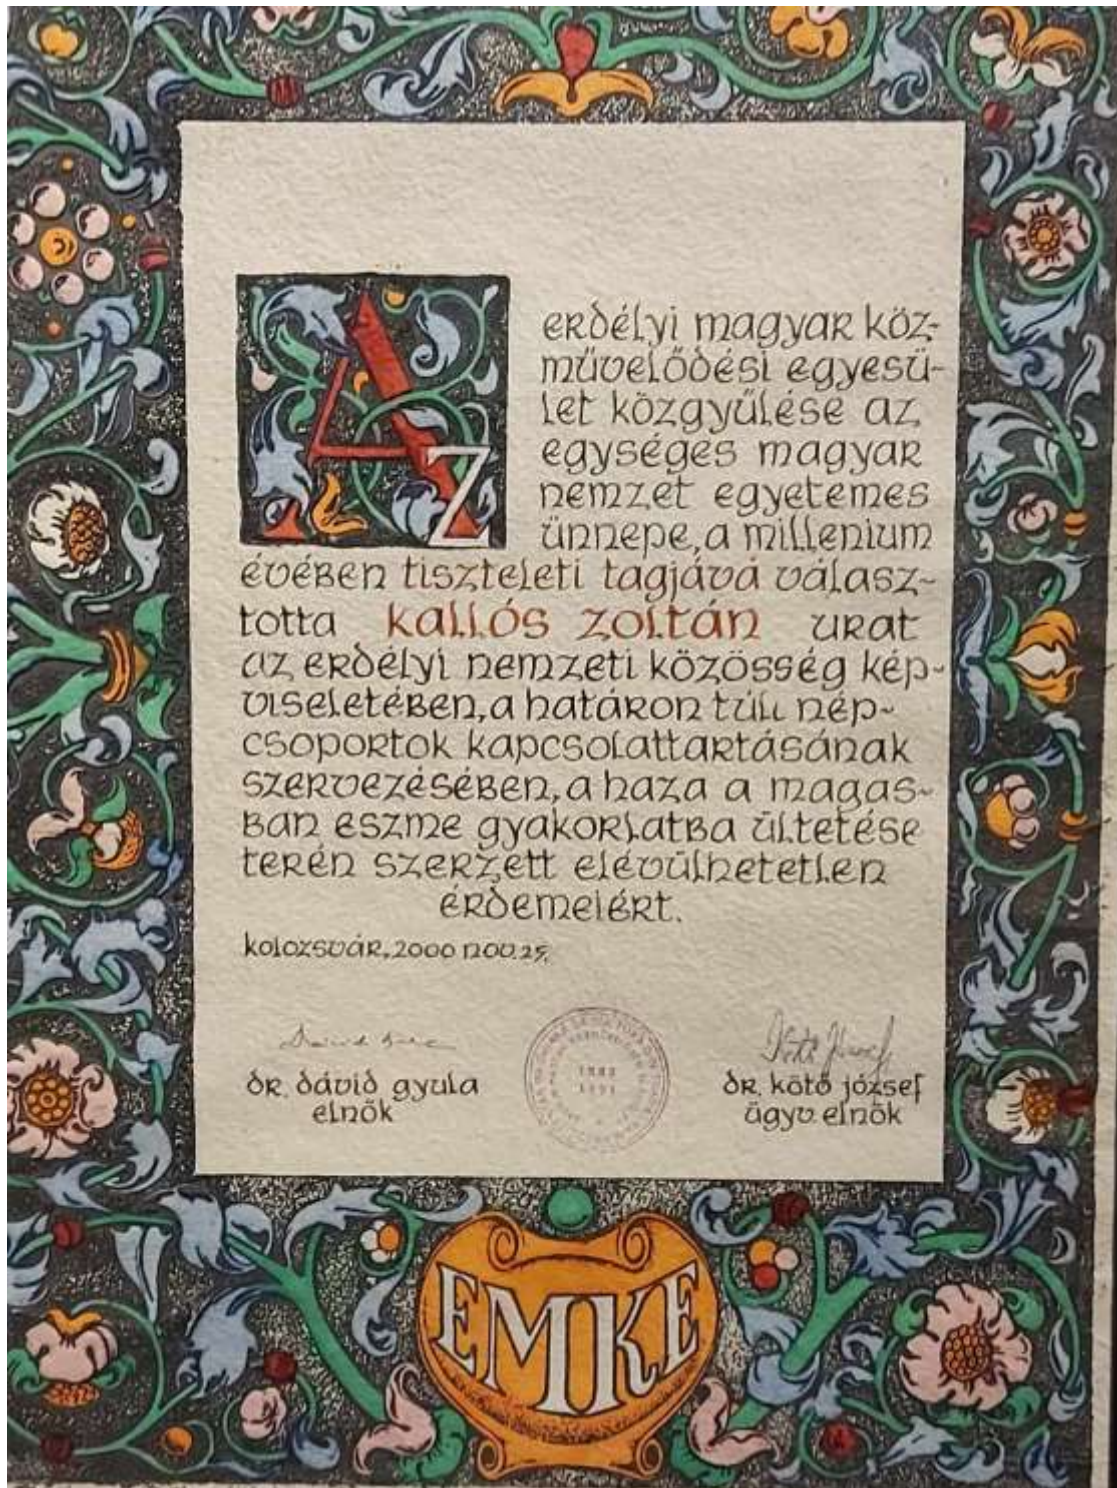 Az
erdélyi magyar köz-
művelődési egyesü-
let közgyűlése az
egységes magyar
nemzet egyetemes
ünnepe, a millenium
évében tiszteleti tagjává válasz-
totta kallós zoltán urat
az erdélyi nemzeti közösség kép-
viseletében, a határon túli nép-
csoportok kapcsolattartásának
szervezésében, a haza a magas-
ban eszme gyakorlatba ültetése
terén szerzett elévülhetetlen
érdemeiért.
kolozsvár, 2000 nov. 25.
dr. dávid gyula
elnök
1885
1991
dr. kötő józsef
ügyv. elnök
EMKE